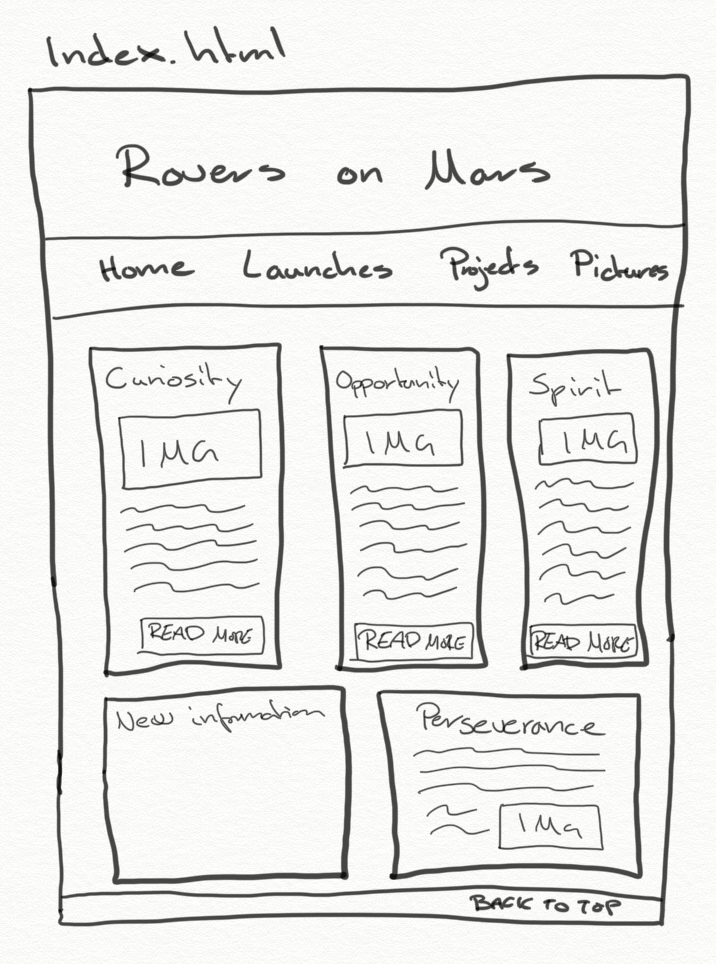 Index.html
Rovers on Mars
Home Launches Projects Pictures
Curiosity
IMG
READ MORE
Opportunity
IMG
READ MORE
Spirit
IMG
READ MORE
New information
Perseverance
IMG
BACK TO TOP